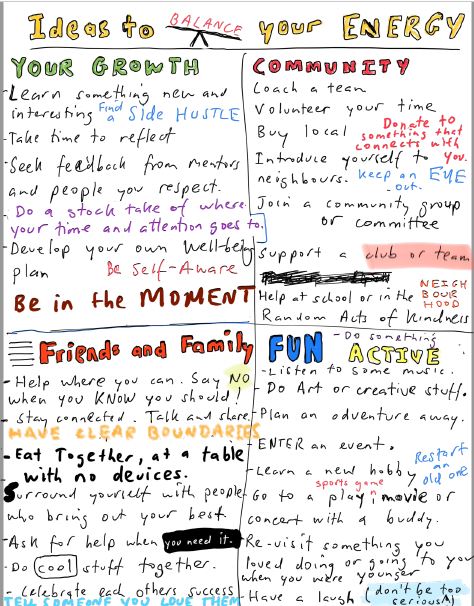 Ideas to BALANCE your ENERGY
YOUR GROWTH
- Learn something new and
interesting Find a SIDE HUSTLE
- Take time to reflect
- Seek feedback from mentors
and people you respect.
- Do a stock take of where
your time and attention goes to.
- Develop your own well-being
plan Be Self-Aware
Be in the MOMENT
COMMUNITY
Coach a team
Volunteer your time
Buy local Donate to
something that
connects with
you.
Introduce yourself to
neighbours. Keep an EYE
out.
Join a community group
or committee
Support a club or team
Help at school or in the NEIGH
BOUR
HOOD
Random Acts of Kindness
Friends and Family
- Help where you can. Say NO
when you KNOW you should!
- Stay connected. Talk and share,
HAVE CLEAR BOUNDARIES
- Eat Together, at a table
with no devices.
Surround yourself with people
who bring out your best.
- Ask for help when you need it.
- Do cool stuff together.
- Celebrate each others success
TELL SOMEONE YOU LOVE THEM
FUN ACTIVE
- Do something
- Listen to some music.
- Do Art or creative stuff.
- Plan an adventure away.
- ENTER an event.
- Learn a new hobby Restart
an old one
- Go to a play, sports game, movie or
concert with a buddy.
- Re-visit something you
loved doing or going to
when you were younger
- Have a laugh (don't be too
serious)